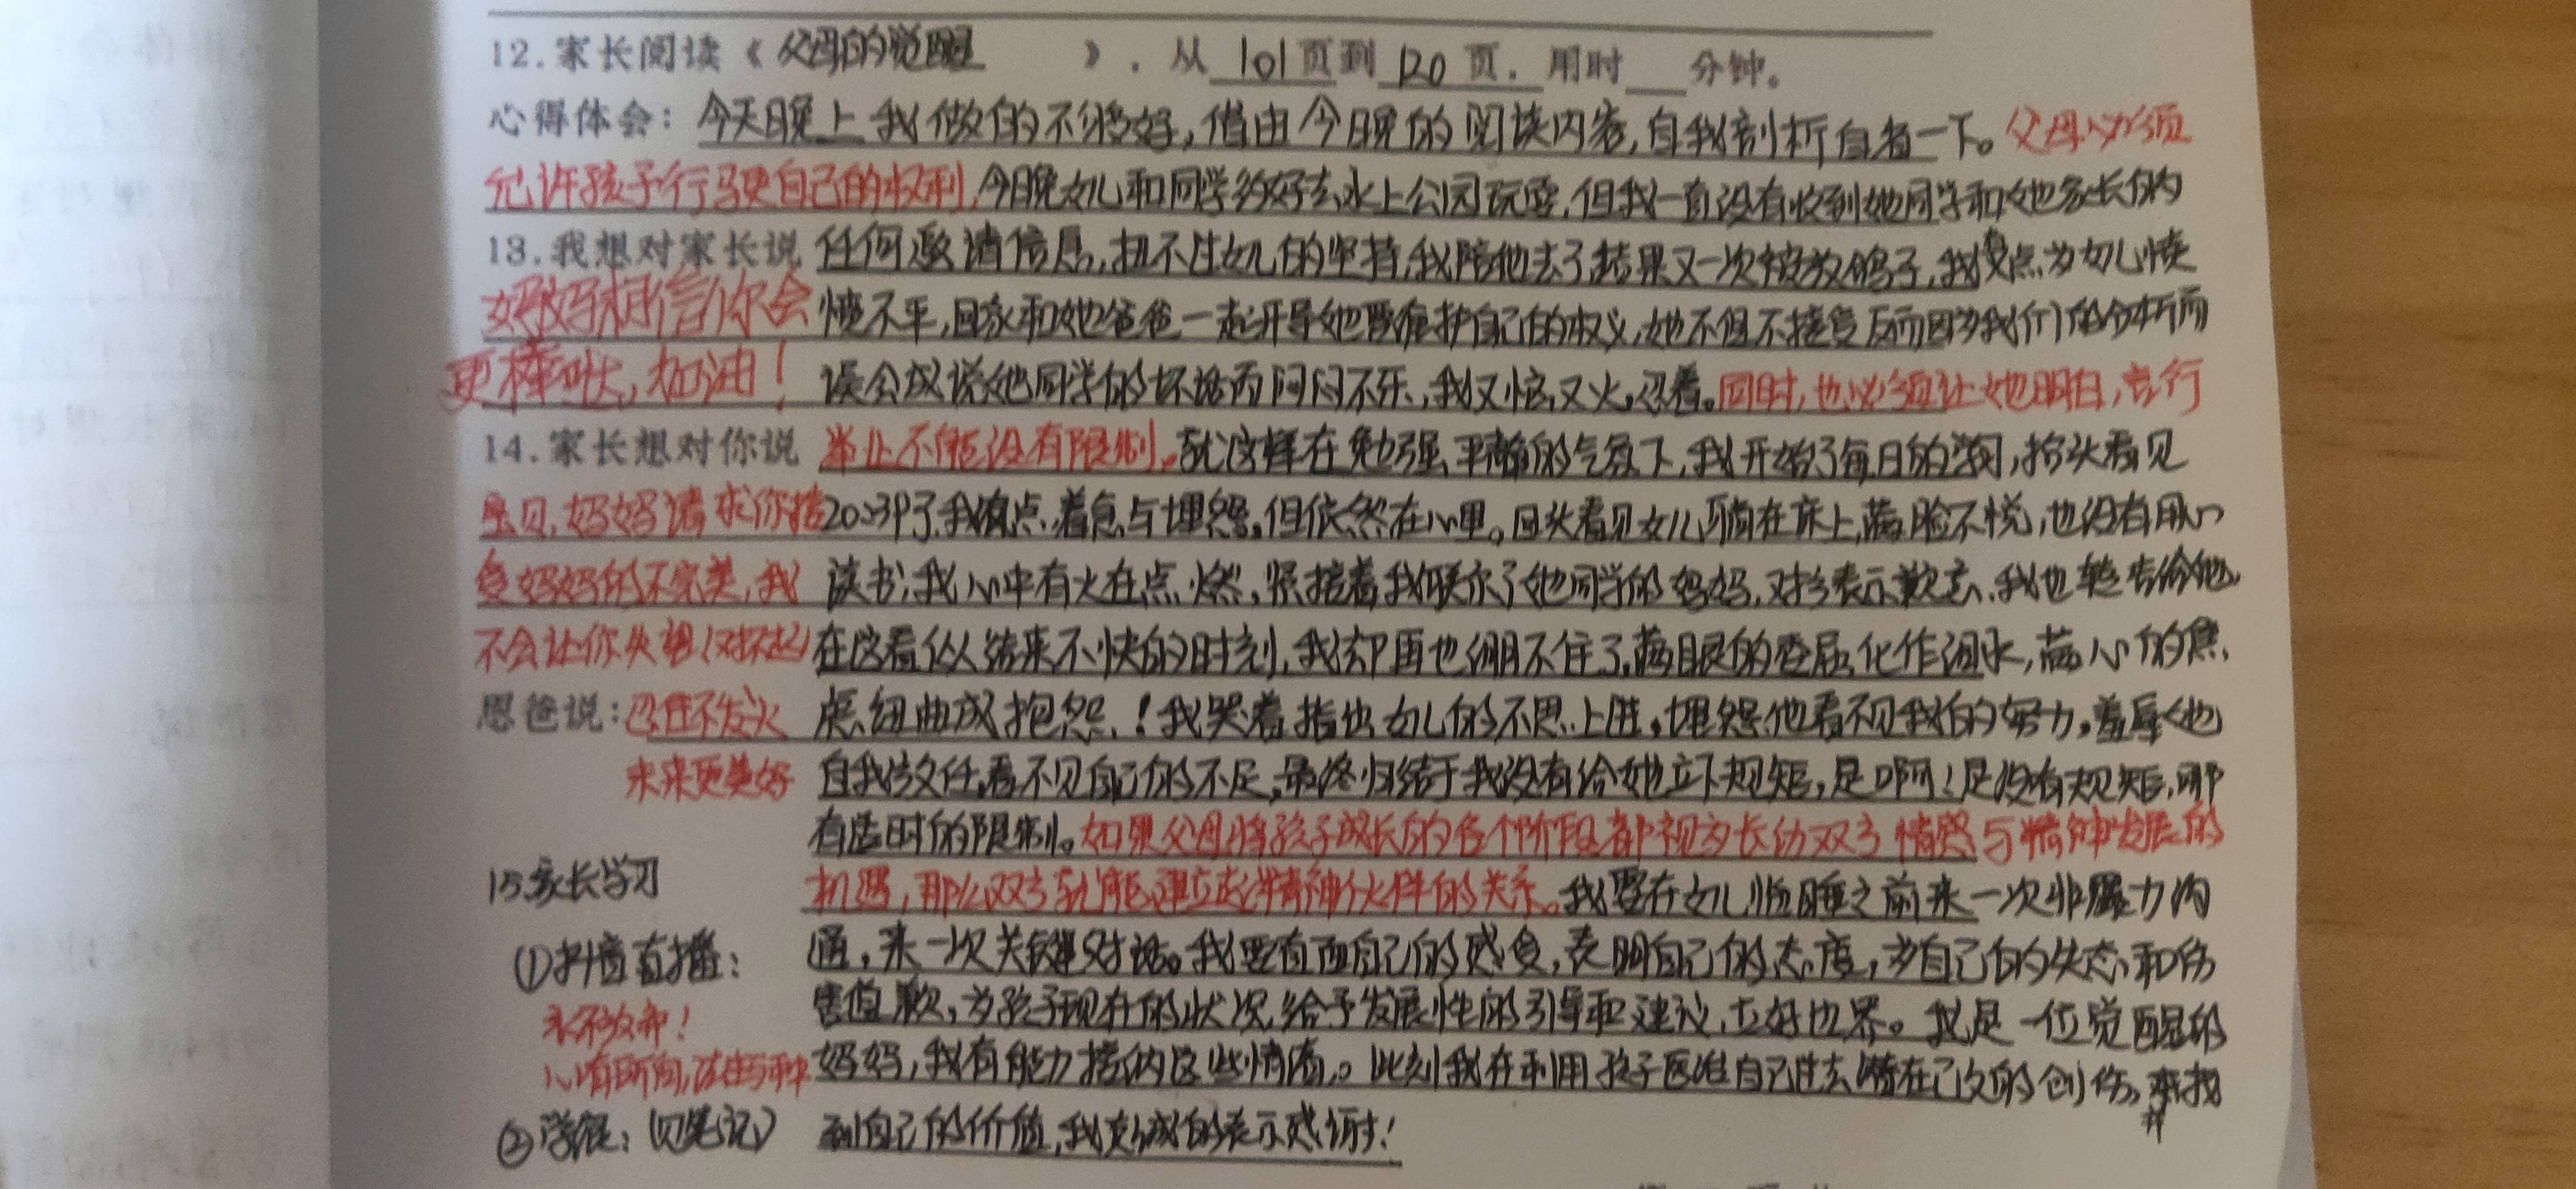 12.家长阅读《父母的觉醒》,从101页到120页,用时__分钟。
心得体会:今天晚上我做的不够好,借由今晚的阅读内容,自我剖析自省一下。父母必须
允许孩子行驶自己的权利,今晚女儿和同学约好去水上公园玩耍,但我一直没有收到她同学和她家长的
13.我想对家长说 任何邀请信息,扭不过女儿的坚持,我陪她去了,结果又一次被放鸽子,我有点为女儿愤
妈妈相信你会 愤不平,回家和她爸爸一起开导她要维护自己的权义,她不但不接受反而因为我们的分析而
更棒哒,加油! 误会成说她同学的坏话而闷闷不乐,我又恼又火,忍着。同时,也必须让她明白,言行
14.家长想对你说 举止不能没有限制。就这样在勉强平静的气氛下,我开始了每日的 抬头看见
宝贝,妈妈请求你接 20:39了,我有点着急与埋怨,但依然在心里。回头看见女儿躺在床上,满脸不悦,也没有用心
受妈妈的不完美,我 读书,我心中有火在点燃,紧接着我联系了她同学的妈妈,对方表示歉意,我也转告给她,
不会让你失望(对不起) 在这看似结束不快的时刻,我却再也绷不住了,满眼的委屈化作泪水,满心的焦
恩爸说:忍住不发火 虑纽曲成抱怨!我哭着指出女儿的不思上进,埋怨他看不见我的努力,羞辱她
未来更美好 自我放任,看不见自己的不足,最终归结于我没有给她立下规矩,是啊!是没有规矩,哪
有适时的限制。如果父母将孩子成长的各个阶段都视为长幼双方情感与精神发展的
15.家长学习 机遇,那么双方就能建立起精神伙伴的关系。我要在女儿临睡之前来一次非暴力沟
①抖音直播: 通,来一次关键对话。我要直面自己的感受,表明自己的态度,为自己的失态和伤
永不放弃! 害道歉,为孩子现在的状况给予发展性的引导和建议,立好边界。我是一位觉醒的
心有所向, 妈妈,我有能力接纳这些情绪。此刻我在利用孩子医治自己过去潜在已久的创伤,来找
②学程:(见笔记) 到自己的价值,我真诚的表示感谢!